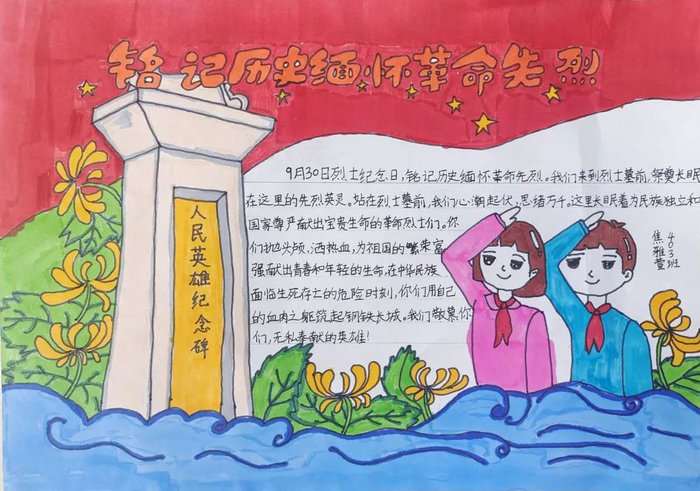 铭记历史缅怀革命先烈
9月30日烈士纪念日,铭记历史缅怀革命先烈。我们来到烈士墓前,祭奠长眠
在这里的先烈英灵。站在烈士墓前,我们心潮起伏,思绪万千。这里长眠着为民族独立和
国家尊严献出宝贵生命的革命烈士们。你
们抛头颅,洒热血,为祖国的繁荣富
强献出青春和年轻的生命,在中华民族
面临生死存亡的危险时刻,你们用自己
的血肉之躯筑起钢铁长城。我们敬慕你
们,无私奉献的英雄!
人民英雄纪念碑
403班
焦雅萱